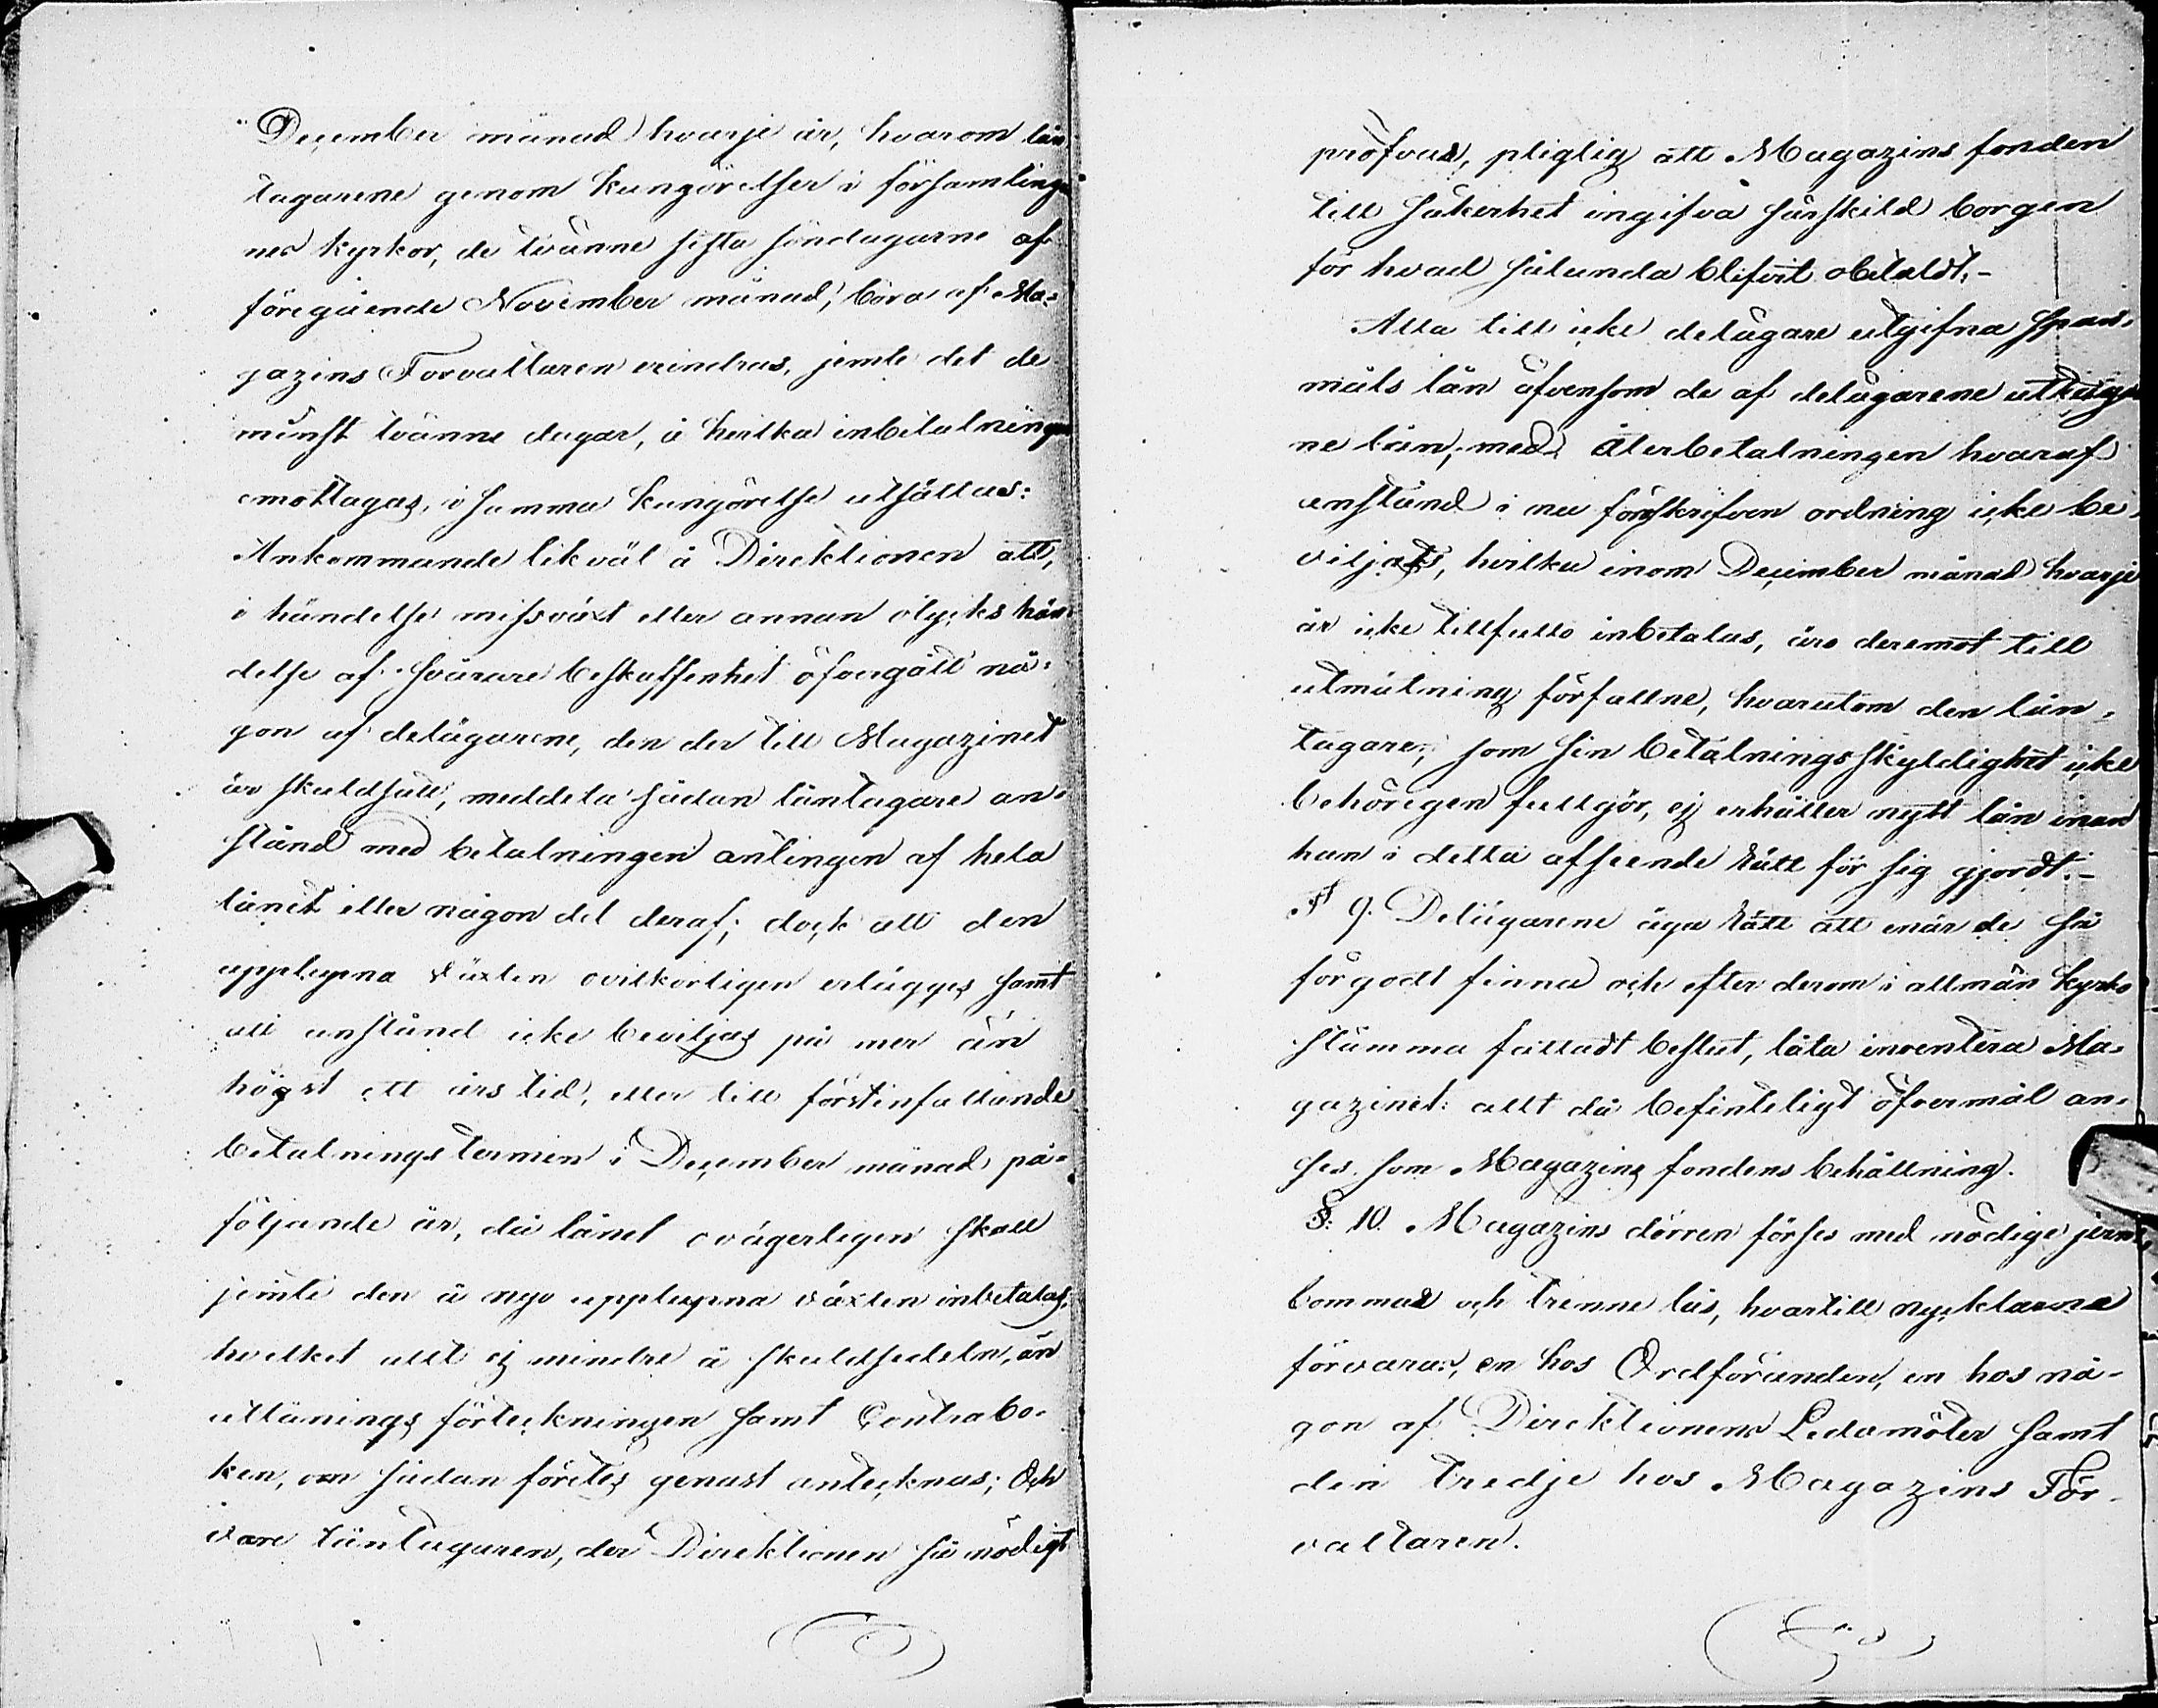 December månad hvarje år, hvarom lån
tagarene genom kungörelser i församlingar
nes kyrkor, de tvänne sista söndagarne af
föregående November månad, böra af Ma=
gazins Förvaltaren erindras, jemte det de
minst tvänne dagar, å hvilka inbetalningen
emottages, i samma kungörelse utsättas:
Ankommande likväl å Direktionen att,
i händelse missväxt eller annan olycks hän=
delse af svårare beskaffenhet öfvergått nå=
gon af delägarene, den der till Magazinet
är skuldsatt, meddela sådan låntagare an=
stånd med betalningen antingen af hela
lånet eller någon del deraf; dock att den
upplupna växten ovilkorligen erlägges samt
att anstånd icke beviljas på mer än
högst ett års tid, eller till förstinfallande
betalnings termin i December månad på=
följande år, då lånet ovägerligen skall
jemte den å nyo upplupna växten inbetalas,
hvilket allt ej mindre å skuldsedeln, än
utlånings förteckningen samt Contrabo=
ken, om sådan företes genast antecknas; Och
vare låntagaren, der Direktionen så nödigt
pröfvar, pligtig att Magazins fonden
till säkerhet ingifva särskild borgen
för hvad sålunda blifvit obetaldt.-
Alla till icke delägare utgifna span=
måls lån äfvensom de af delägarene uttag
ne lån, med återbetalningen hvaraf
anstånd i nu föreskrifven ordning icke be=
viljats, hvilka inom December månad hvarje
år icke tillfullo inbetalas, äro deremot till
utmätning förfallne, hvarutom den lån=
tagare, som sin betalningsskyldighet icke
behörigen fullgör, ej erhåller nytt lån innan
han i detta afseende rätt för sig gjordt.-
§ 9. Delägarene äga rätt att enär de så
för godt finna och efter derom i allmän kyrko
stämma fattadt beslut, låta inventera Ma=
gazinet: allt då befinteligt öfvermål an=
ses som Magazins fondens behållning.
§: 10. Magazins dörren förses med nödige jern=
bommar och trenne lås, hvartill nycklarne
förvaras, en hos Ordföranden, en hos nå=
gon af Direktionens Ledamöter samt
den tredje hos Magazins För=
valtaren.